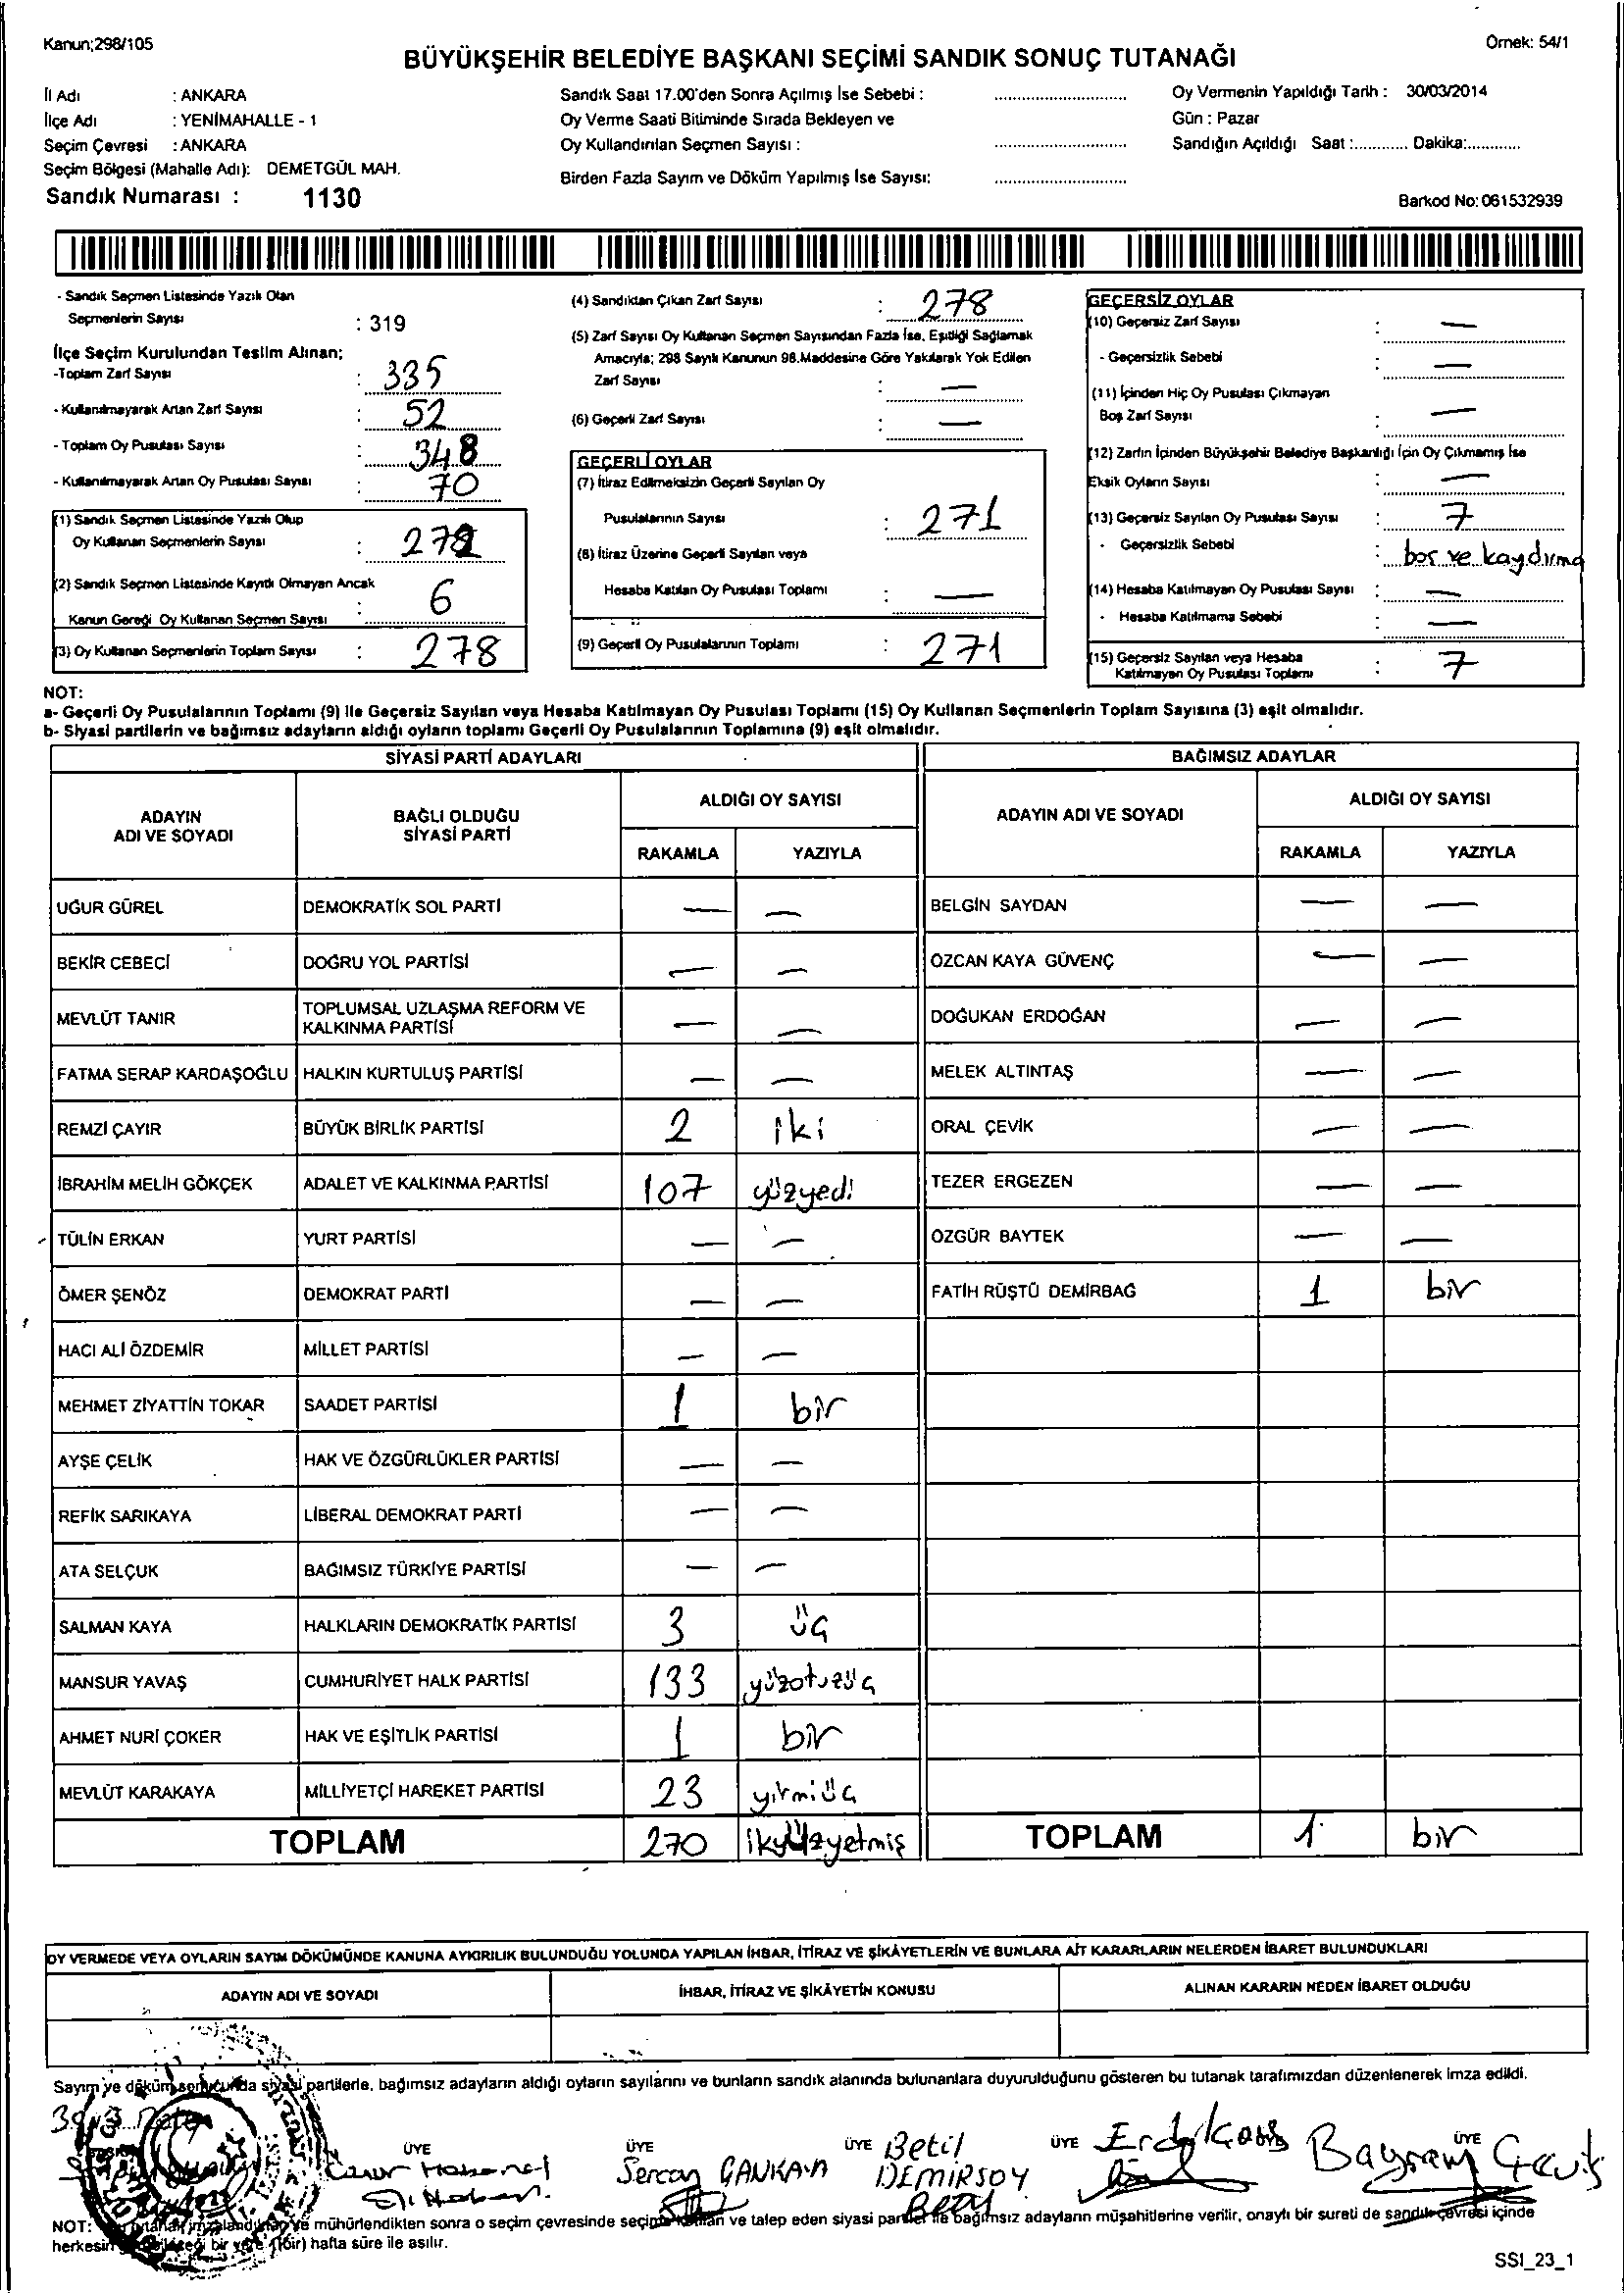 Kanun;298/105
Örnek: 54/1
BÜYÜKŞEHİR BELEDİYE BAŞKANI SEÇİMİ SANDIK SONUÇ TUTANAĞI
İl Adı : ANKARA
İlçe Adı : YENİMAHALLE - 1
Seçim Çevresi : ANKARA
Seçim Bölgesi (Mahalle Adı): DEMETGÜL MAH.
Sandık Numarası : 1130
Sandık Saat 17.00'den Sonra Açılmış İse Sebebi :
Oy Verme Saati Bitiminde Sırada Bekleyen ve
Oy Kullandırılan Seçmen Sayısı :
Birden Fazla Sayım ve Döküm Yapılmış İse Sayısı:
Oy Vermenin Yapıldığı Tarih : 30/03/2014
Gün : Pazar
Sandığın Açıldığı Saat :............ Dakika:............
Barkod No: 061532939
- Sandık Seçmen Listesinde Yazılı Olan
Seçmenlerin Sayısı : 319
İlçe Seçim Kurulundan Teslim Alınan;
-Toplam Zarf Sayısı : 335
- Kullanılmayarak Artan Zarf Sayısı : 52
- Toplam Oy Pusulası Sayısı : 348
- Kullanılmayarak Artan Oy Pusulası Sayısı : 70
(1) Sandık Seçmen Listesinde Yazılı Olup
Oy Kullanan Seçmenlerin Sayısı :
(2) Sandık Seçmen Listesinde Kayıtlı Olmayan Ancak
Kanun Gereği Oy Kullanan Seçmen Sayısı : 6
(3) Oy Kullanan Seçmenlerin Toplam Sayısı : 278
(4) Sandıktan Çıkan Zarf Sayısı : 278
(5) Zarf Sayısı Oy Kullanan Seçmen Sayısından Fazla İse, Eşitliği Sağlamak
Amacıyla; 298 Sayılı Kanunun 98.Maddesine Göre Yakılarak Yok Edilen
Zarf Sayısı : —
(6) Geçerli Zarf Sayısı : —
GEÇERLİ OYLAR
(7) İtiraz Edilmeksizin Geçerli Sayılan Oy
Pusulalarının Sayısı : 271
(8) İtiraz Üzerine Geçerli Sayılan veya
Hesaba Katılan Oy Pusulası Toplamı : —
(9) Geçerli Oy Pusulalarının Toplamı : 271
GEÇERSİZ OYLAR
(10) Geçersiz Zarf Sayısı : —
- Geçersizlik Sebebi : —
(11) İçinden Hiç Oy Pusulası Çıkmayan
Boş Zarf Sayısı : —
(12) Zarfın İçinden Büyükşehir Belediye Başkanlığı İçin Oy Çıkmamış İse
Eksik Oyların Sayısı : —
(13) Geçersiz Sayılan Oy Pusulası Sayısı : 7
- Geçersizlik Sebebi : boş ve kaydırma
(14) Hesaba Katılmayan Oy Pusulası Sayısı : —
- Hesaba Katılmama Sebebi : —
(15) Geçersiz Sayılan veya Hesaba
Katılmayan Oy Pusulası Toplamı : 7
NOT:
a- Geçerli Oy Pusulalarının Toplamı (9) ile Geçersiz Sayılan veya Hesaba Katılmayan Oy Pusulası Toplamı (15) Oy Kullanan Seçmenlerin Toplam Sayısına (3) eşit olmalıdır.
b- Siyasi partilerin ve bağımsız adayların aldığı oyların toplamı Geçerli Oy Pusulalarının Toplamına (9) eşit olmalıdır.
SİYASİ PARTİ ADAYLARI
ADAYIN ADI VE SOYADI
BAĞLI OLDUĞU SİYASİ PARTİ
ALDIĞI OY SAYISI
RAKAMLA YAZIYLA
UĞUR GÜREL DEMOKRATİK SOL PARTİ — —
BEKİR CEBECİ DOĞRU YOL PARTİSİ — —
MEVLÜT TANIR TOPLUMSAL UZLAŞMA REFORM VE KALKINMA PARTİSİ — —
FATMA SERAP KARDAŞOĞLU HALKIN KURTULUŞ PARTİSİ — —
REMZİ ÇAYIR BÜYÜK BİRLİK PARTİSİ 2 iki
İBRAHİM MELİH GÖKÇEK ADALET VE KALKINMA PARTİSİ 107 yüzyedi
TÜLİN ERKAN YURT PARTİSİ — —
ÖMER ŞENÖZ DEMOKRAT PARTİ — —
HACI ALİ ÖZDEMİR MİLLET PARTİSİ — —
MEHMET ZİYATTİN TOKAR SAADET PARTİSİ 1 bir
AYŞE ÇELİK HAK VE ÖZGÜRLÜKLER PARTİSİ — —
REFİK SARIKAYA LİBERAL DEMOKRAT PARTİ — —
ATA SELÇUK BAĞIMSIZ TÜRKİYE PARTİSİ — —
SALMAN KAYA HALKLARIN DEMOKRATİK PARTİSİ 3 üç
MANSUR YAVAŞ CUMHURİYET HALK PARTİSİ 133 yüzotuzüç
AHMET NURİ ÇOKER HAK VE EŞİTLİK PARTİSİ 1 bir
MEVLÜT KARAKAYA MİLLİYETÇİ HAREKET PARTİSİ 23 yirmiüç
TOPLAM 270 ikiyüzyetmiş
BAĞIMSIZ ADAYLAR
ADAYIN ADI VE SOYADI
ALDIĞI OY SAYISI
RAKAMLA YAZIYLA
BELGİN SAYDAN — —
ÖZCAN KAYA GÜVENÇ — —
DOĞUKAN ERDOĞAN — —
MELEK ALTINTAŞ — —
ORAL ÇEVİK — —
TEZER ERGEZEN — —
ÖZGÜR BAYTEK — —
FATİH RÜŞTÜ DEMİRBAĞ 1 bir
TOPLAM 1 bir
OY VERMEDE VEYA OYLARIN SAYIM DÖKÜMÜNDE KANUNA AYKIRILIK BULUNDUĞU YOLUNDA YAPILAN İHBAR, İTİRAZ VE ŞİKÂYETLERİN VE BUNLARA AİT KARARLARIN NELERDEN İBARET BULUNDUKLARI
ADAYIN ADI VE SOYADI
İHBAR, İTİRAZ VE ŞİKÂYETİN KONUSU
ALINAN KARARIN NEDEN İBARET OLDUĞU
Sayım ve döküm sonucunda siyasi partilerle, bağımsız adayların aldığı oyların sayılarını ve bunların sandık alanında bulunanlara duyurulduğunu gösteren bu tutanak tarafımızdan düzenlenerek imza edildi.
ÜYE ÜYE ÜYE ÜYE ÜYE
Sercan ÇANKAYA
Betil DEMİRSOY
Bayram
NOT: Bu tutanak imzalandıktan ve mühürlendikten sonra o seçim çevresinde seçime katılan ve talep eden siyasi partiler ile bağımsız adayların müşahitlerine verilir, onaylı bir sureti de sandık çevresi içinde
herkesin bir yere (bir) hafta süre ile asılır.
SSI_23_1